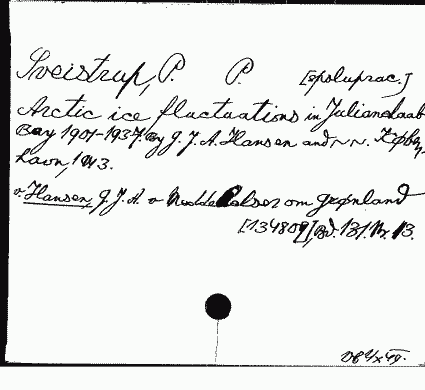 Sveistrup, P. P. [spoluprac.]
Arctic ice fluctuations in Julianehaab
Bay 1901-1937. By J. J. A. Hansen and ~ ~. Købn-
havn, 1943.
v Hansen, J. J. A. v Meddelelser om grønland
[134809], Bd. 131. Nr. 13.